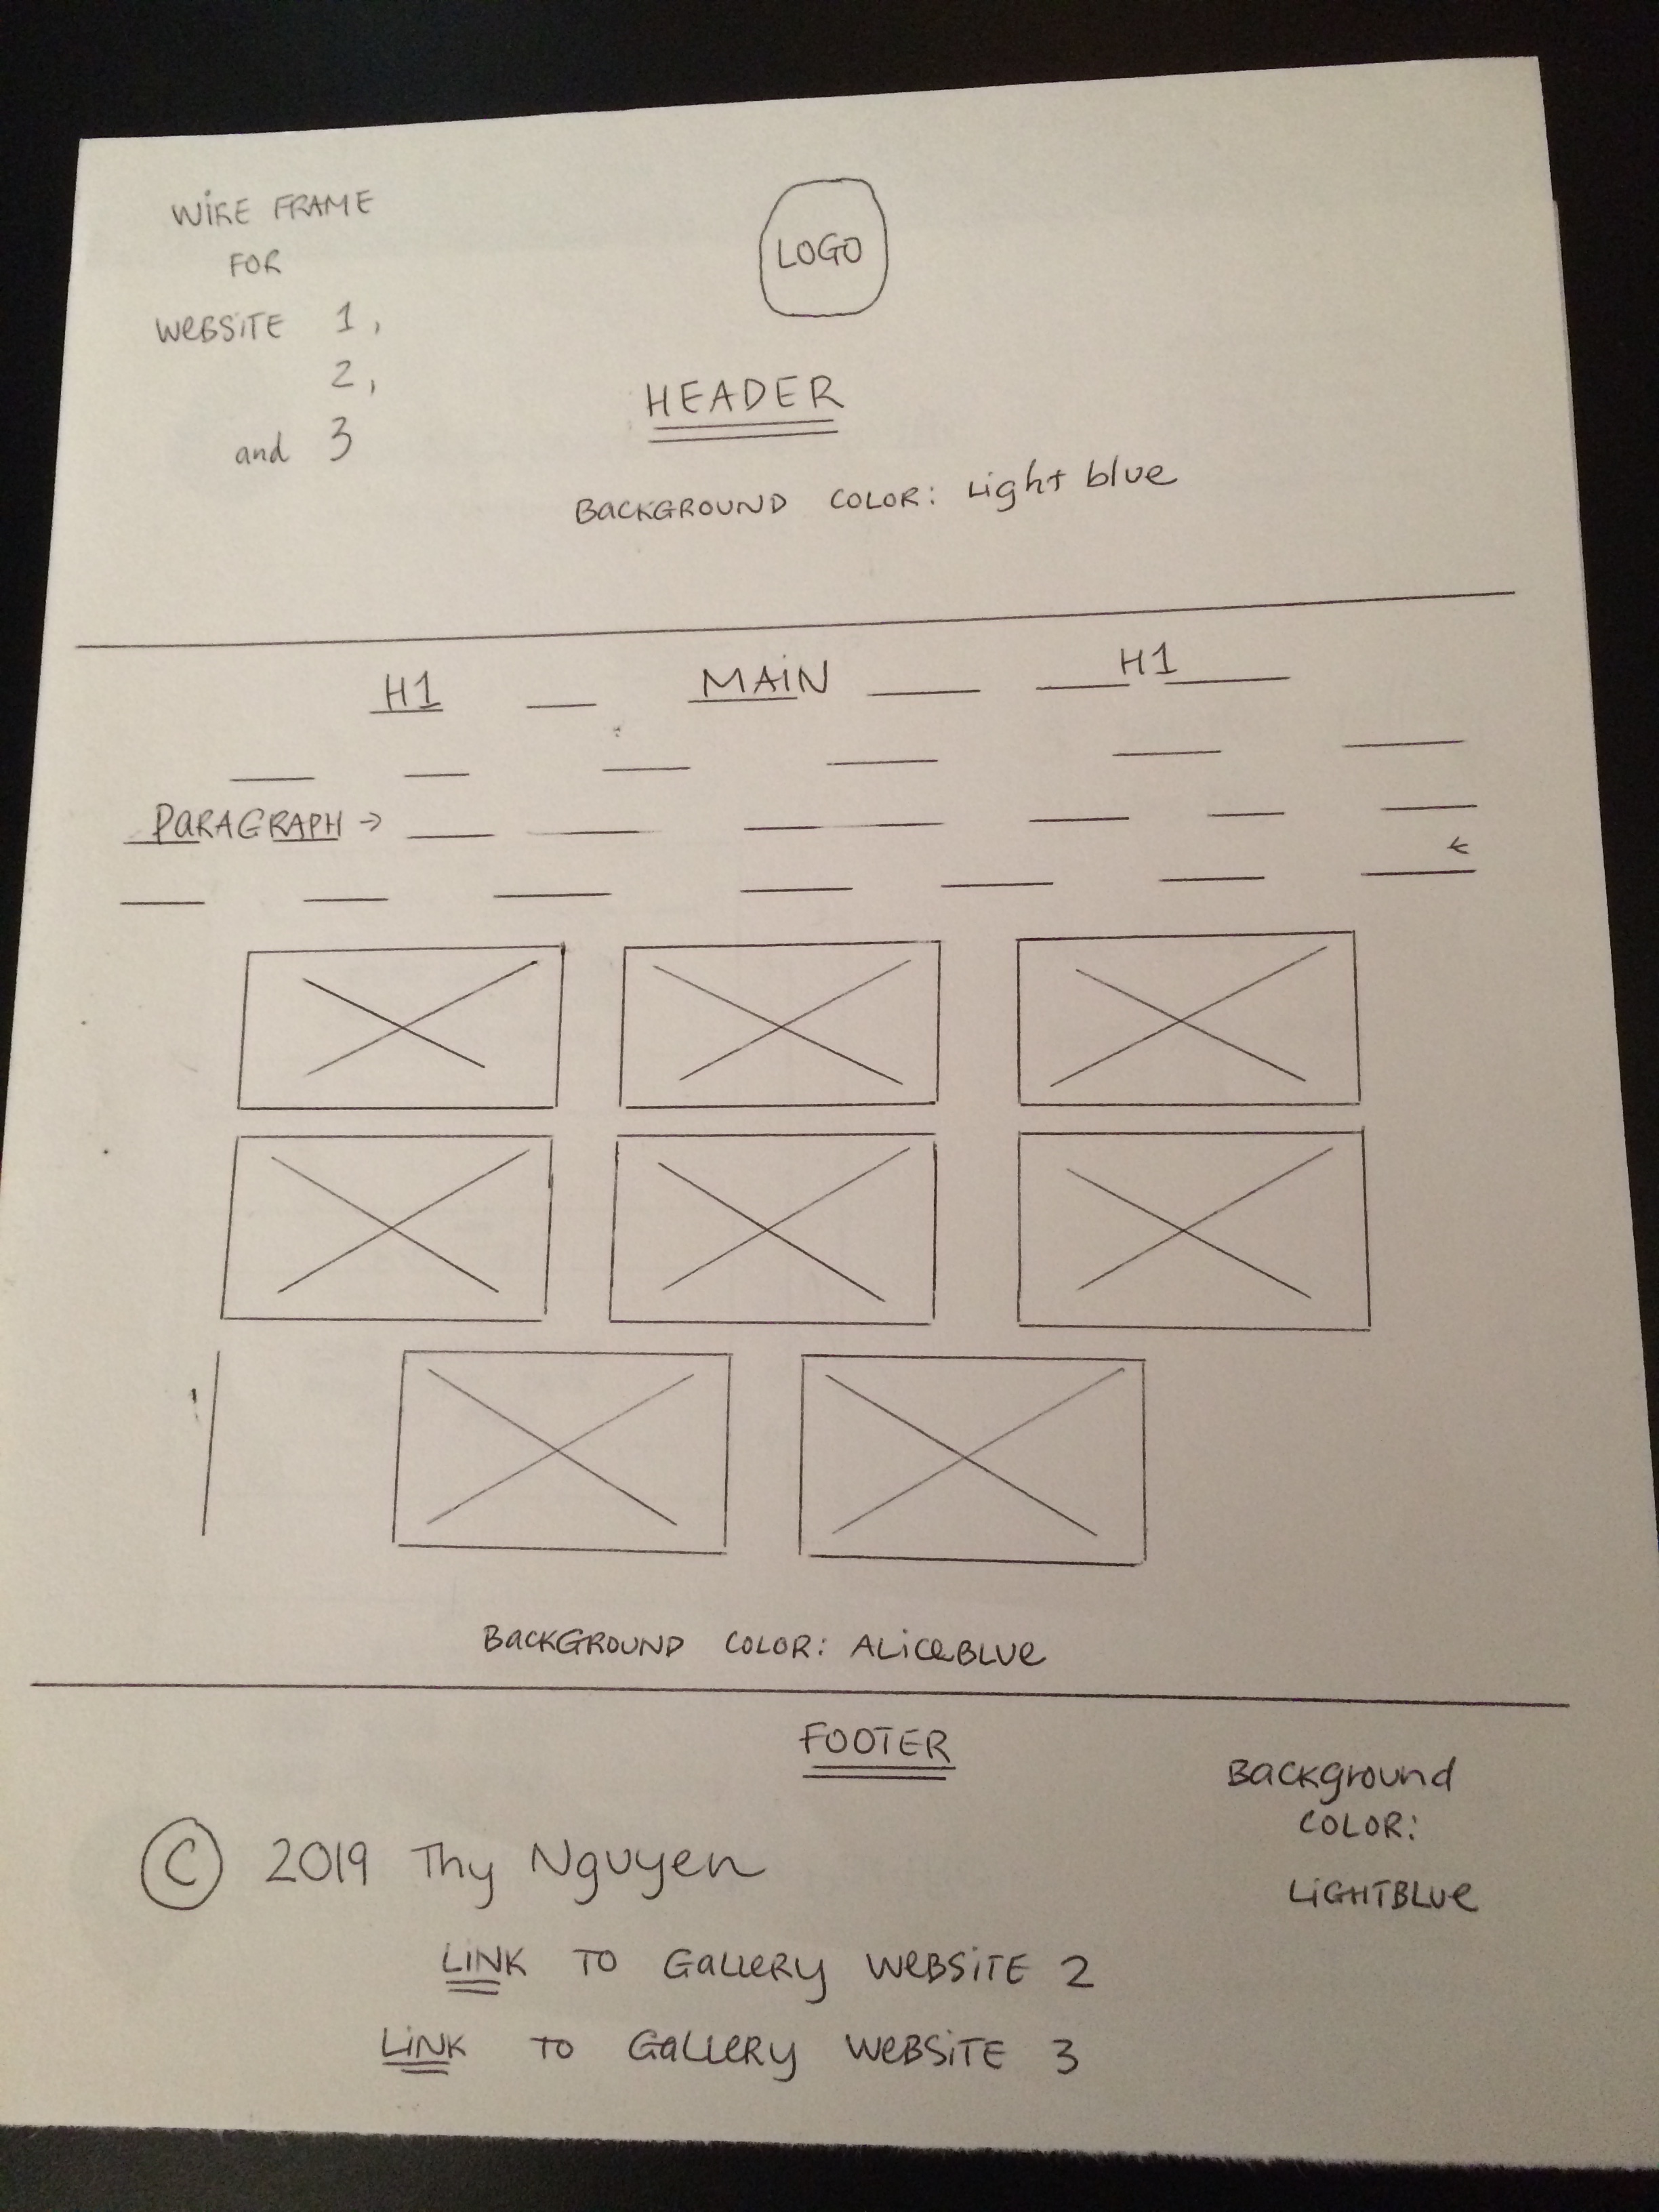 WIRE FRAME
FOR
WEBSITE 1,
2,
and 3
LOGO
HEADER
BACKGROUND COLOR: Light blue
H1 MAIN H1
PARAGRAPH →
←
BACKGROUND COLOR: ALICEBLUE
FOOTER
Background
COLOR:
LIGHTBLUE
© 2019 Thy Nguyen
LINK TO GALLERY WEBSITE 2
LINK TO GALLERY WEBSITE 3